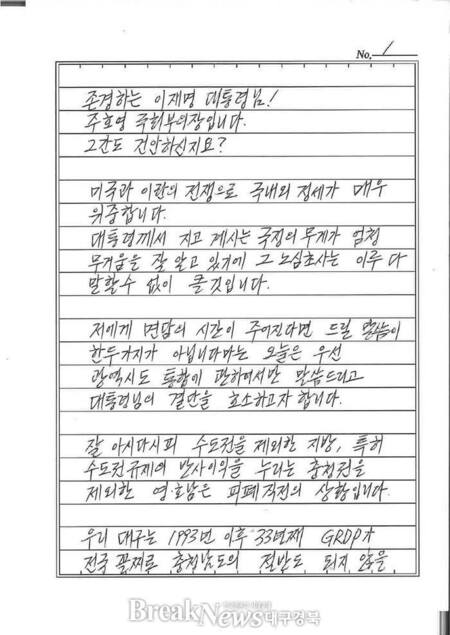 No. 1
존경하는 이재명 대통령님!
주호영 국회부의장입니다.
그간도 건안하신지요?
미국과 이란의 전쟁으로 국내외 정세가 매우
위중합니다.
대통령께서 지고 계시는 국정의 무게가 엄청
무거움을 잘 알고 있기에 그 노심초사는 이루 다
말할 수 없이 클 것입니다.
저에게 면담의 시간이 주어진다면 드릴 말씀이
한두가지가 아닙니다마는 오늘은 우선
광역시도 통합에 관하여서만 말씀드리고
대통령님의 결단을 호소하고자 합니다.
잘 아시다시피 수도권을 제외한 지방, 특히
수도권규제에 반사이익을 누리는 충청권을
제외한 영·호남은 피폐직전의 상황입니다.
우리 대구는 1993년 이후 33년째 GRDP가
전국 꼴찌로 충청남도의 절반도 되지 않을
BreakNews 대구경북